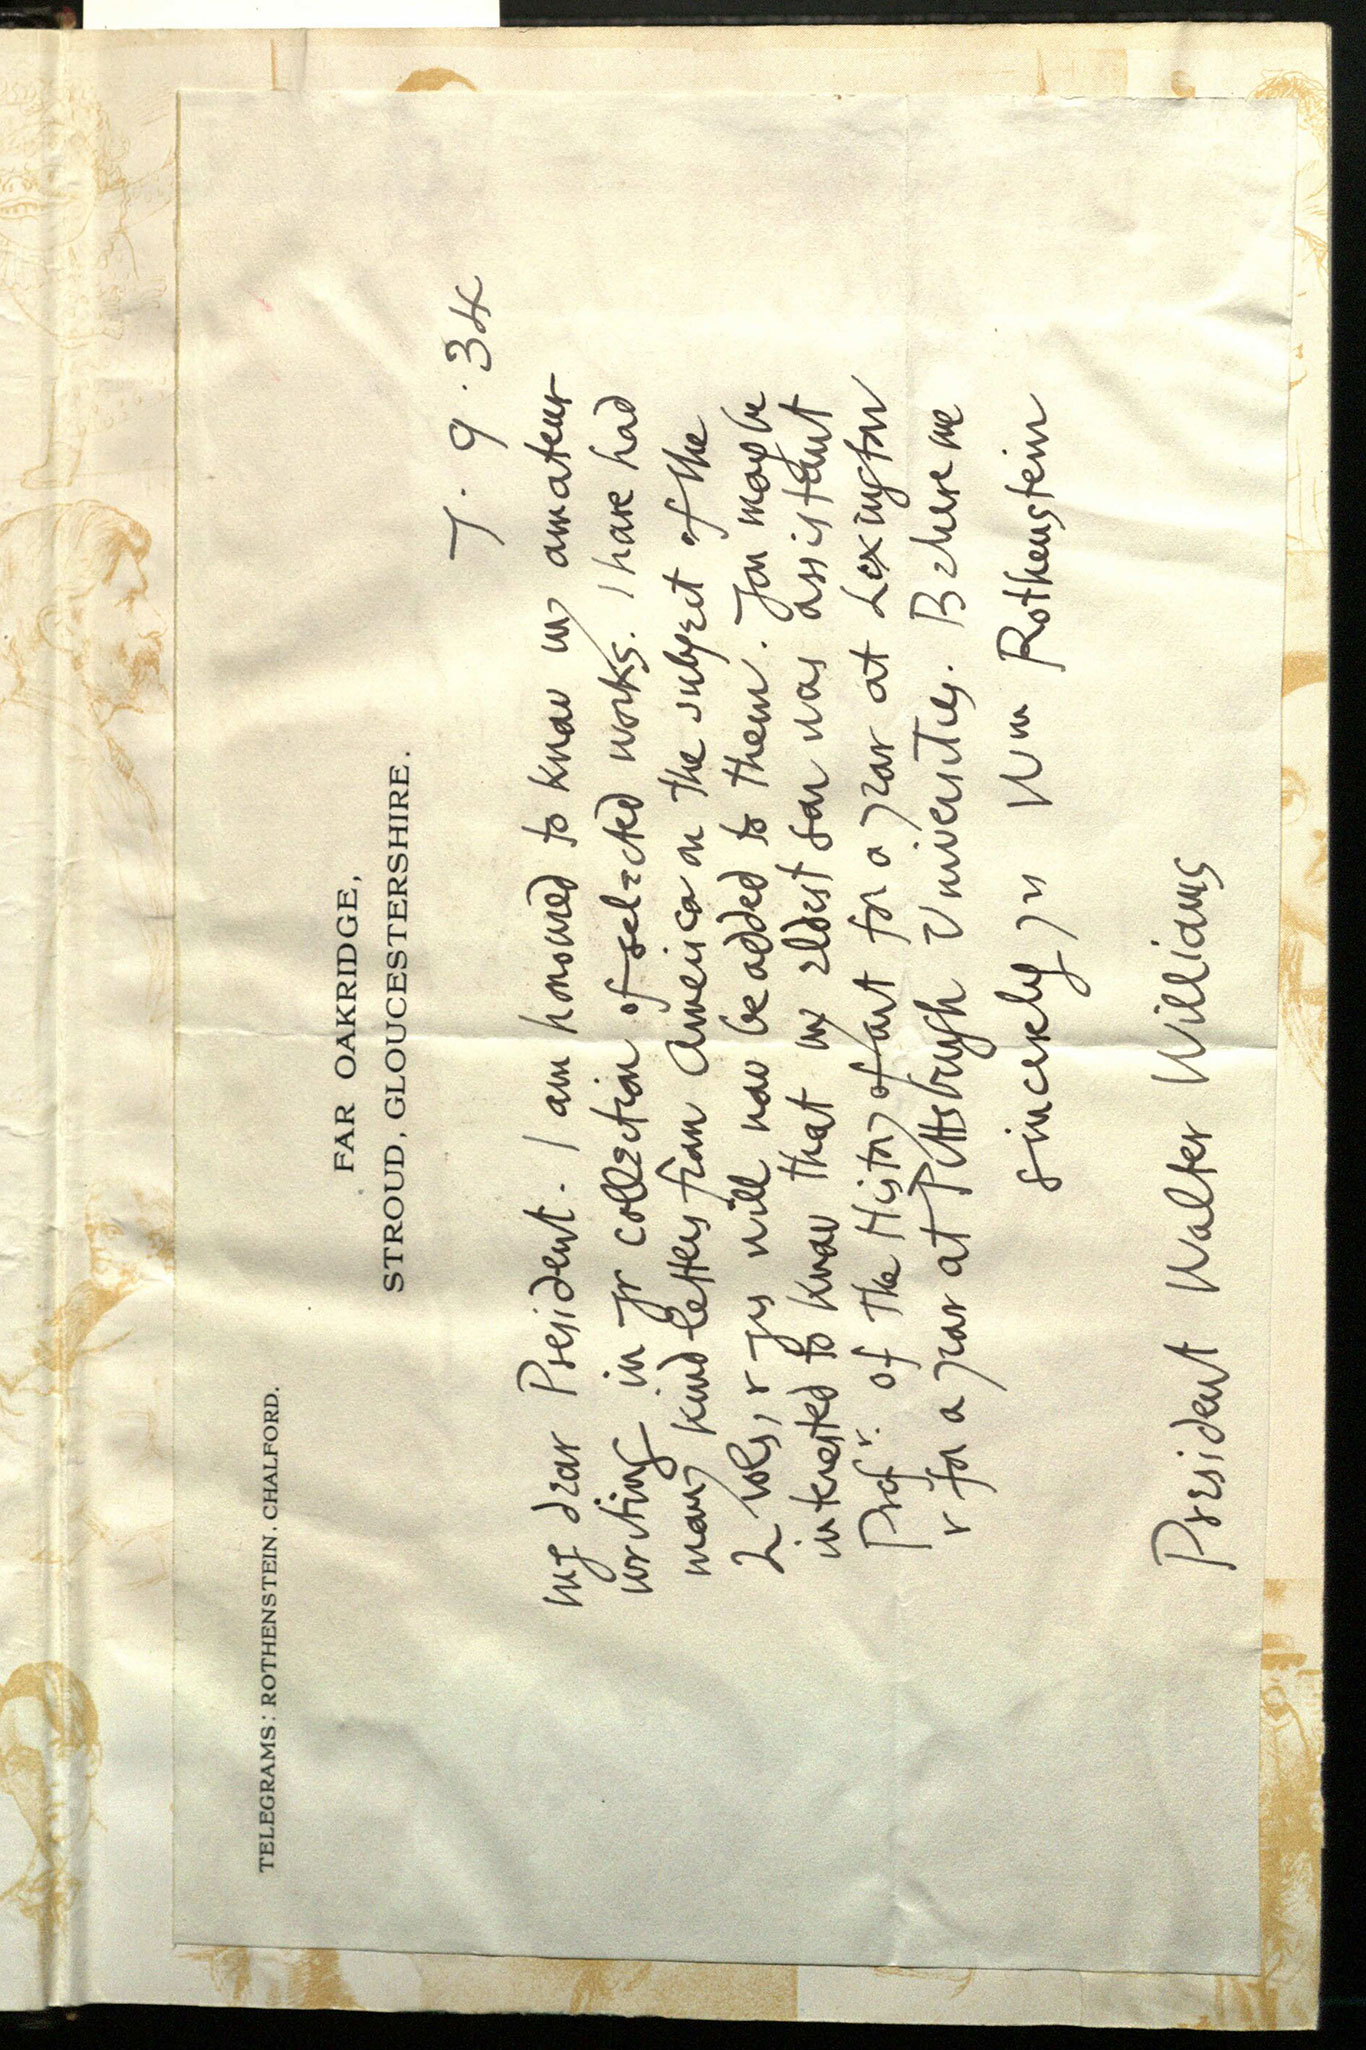 TELEGRAMS: ROTHENSTEIN. CHALFORD.
FAR OAKRIDGE,
STROUD, GLOUCESTERSHIRE.
7. 9. 34
My dear President. I am honoured to know my amateur
writing in yr collection of selected works. I have had
many kind letters from America on the subject of the
2 vols, & yrs will now be added to them. You may be
interested to know that my eldest son was assistant
Profr. of the History of art for a year at Lexington
& for a year at Pittsburgh Universities. Believe me
sincerely yrs Wm Rothenstein
President Walter Williams